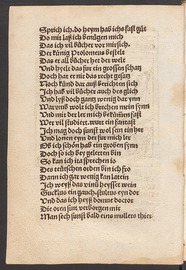 Sprich ich. do heym hab ichs fast gůt
Do mit laß ich benůgen mich
Das ich vil bücher vor mir sich.
Der künig Ptolomeus bestelt
Das er all bücher het der welt
Und hyelt das für ein grossen schatz
Doch hat er nit das recht gesatz
Noch kund dar uß berichten sich
Ich hab vil bücher ouch des glich
Und lyß doch gantz wenig dar inn
Warumb wolt ich brechen myn synn
Und mit der ler mich bekümbren fast
Wer vil studiert. würt ein fantast
Ich mag doch sunst wol sin ein her
Und lonen eym der für mich ler
Ob ich schon hab ein groben synn
Doch so ich bey gelerten bin
So kan ich ita sprechen jo
Des teütschen orden bin ich fro
Dann ich gar wenig kan latein
Ich weyß das vinū heysset wein
Gucklus ein gauch. stultus eyn dor
Und das ich heyß domne doctor
Die oren sint verborgen mir
Man sech sunst bald eins mullers thier